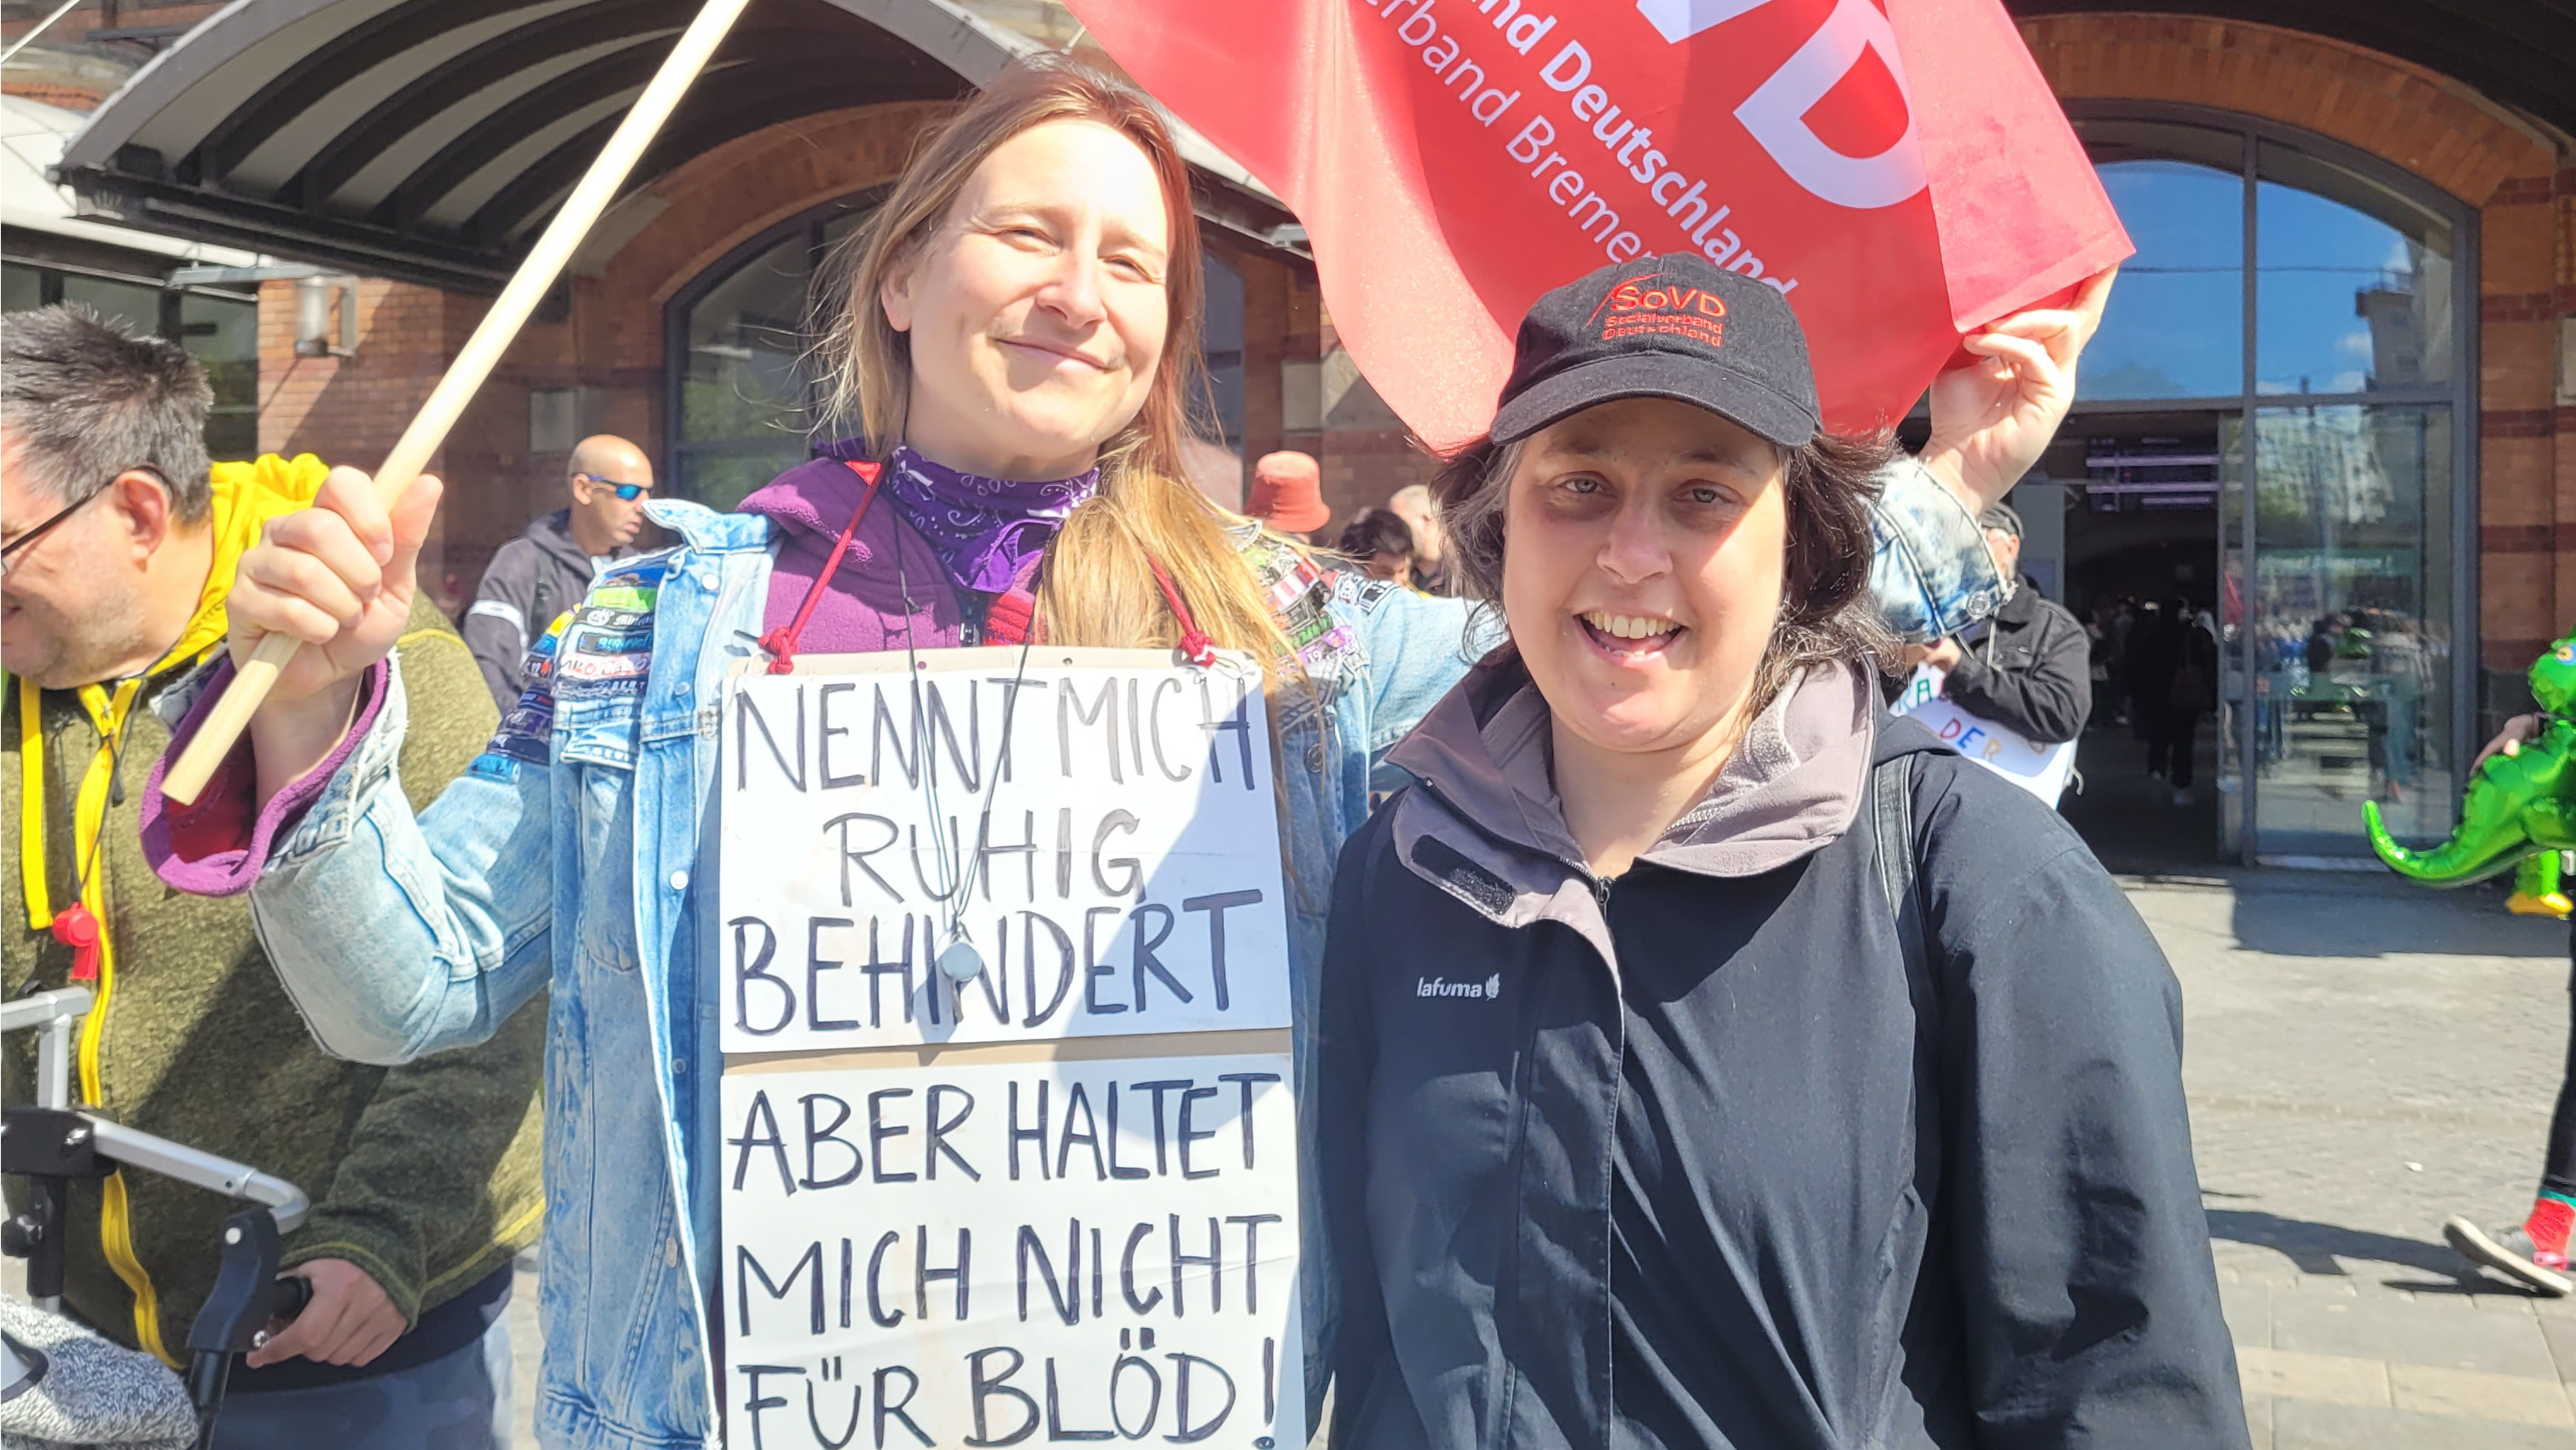 VD
nd Deutschland
erband Bremen
SoVD
Sozialverband
Deutschland
NENNT MICH
RUHIG
BEHINDERT
ABER HALTET
MICH NICHT
FÜR BLÖD!
lafuma
DER